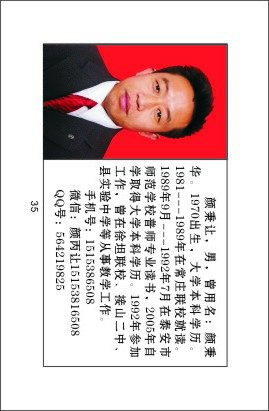 颜秉让，男，曾用名：颜秉
华。1970出生，大学本科学历。
1981---1989年在常庄联校就读。
1989年9月---1992年7月在泰安市
师范学校普师专业读书，2005年自
学取得大学本科学历。1992年参加
工作，曾在徐坦联校、接山二中、
县实验中学等从事教学工作。
手机号：1515386508
微信：颜丙让15153816508
QQ号：564219825
35